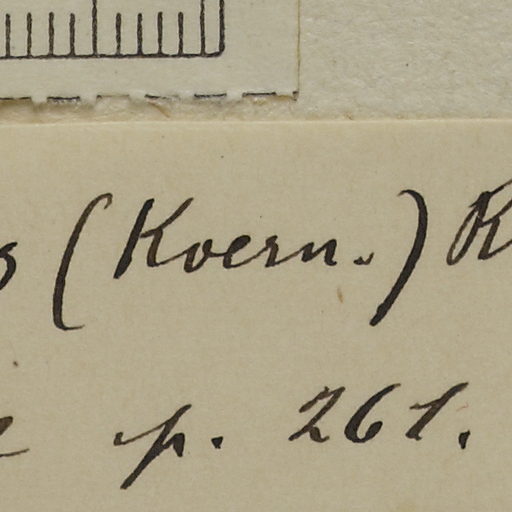 (Koern.)
p. 261.